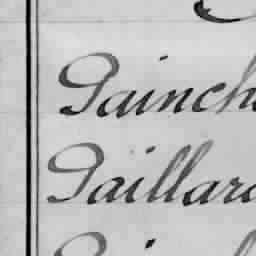 Painch
Paillard